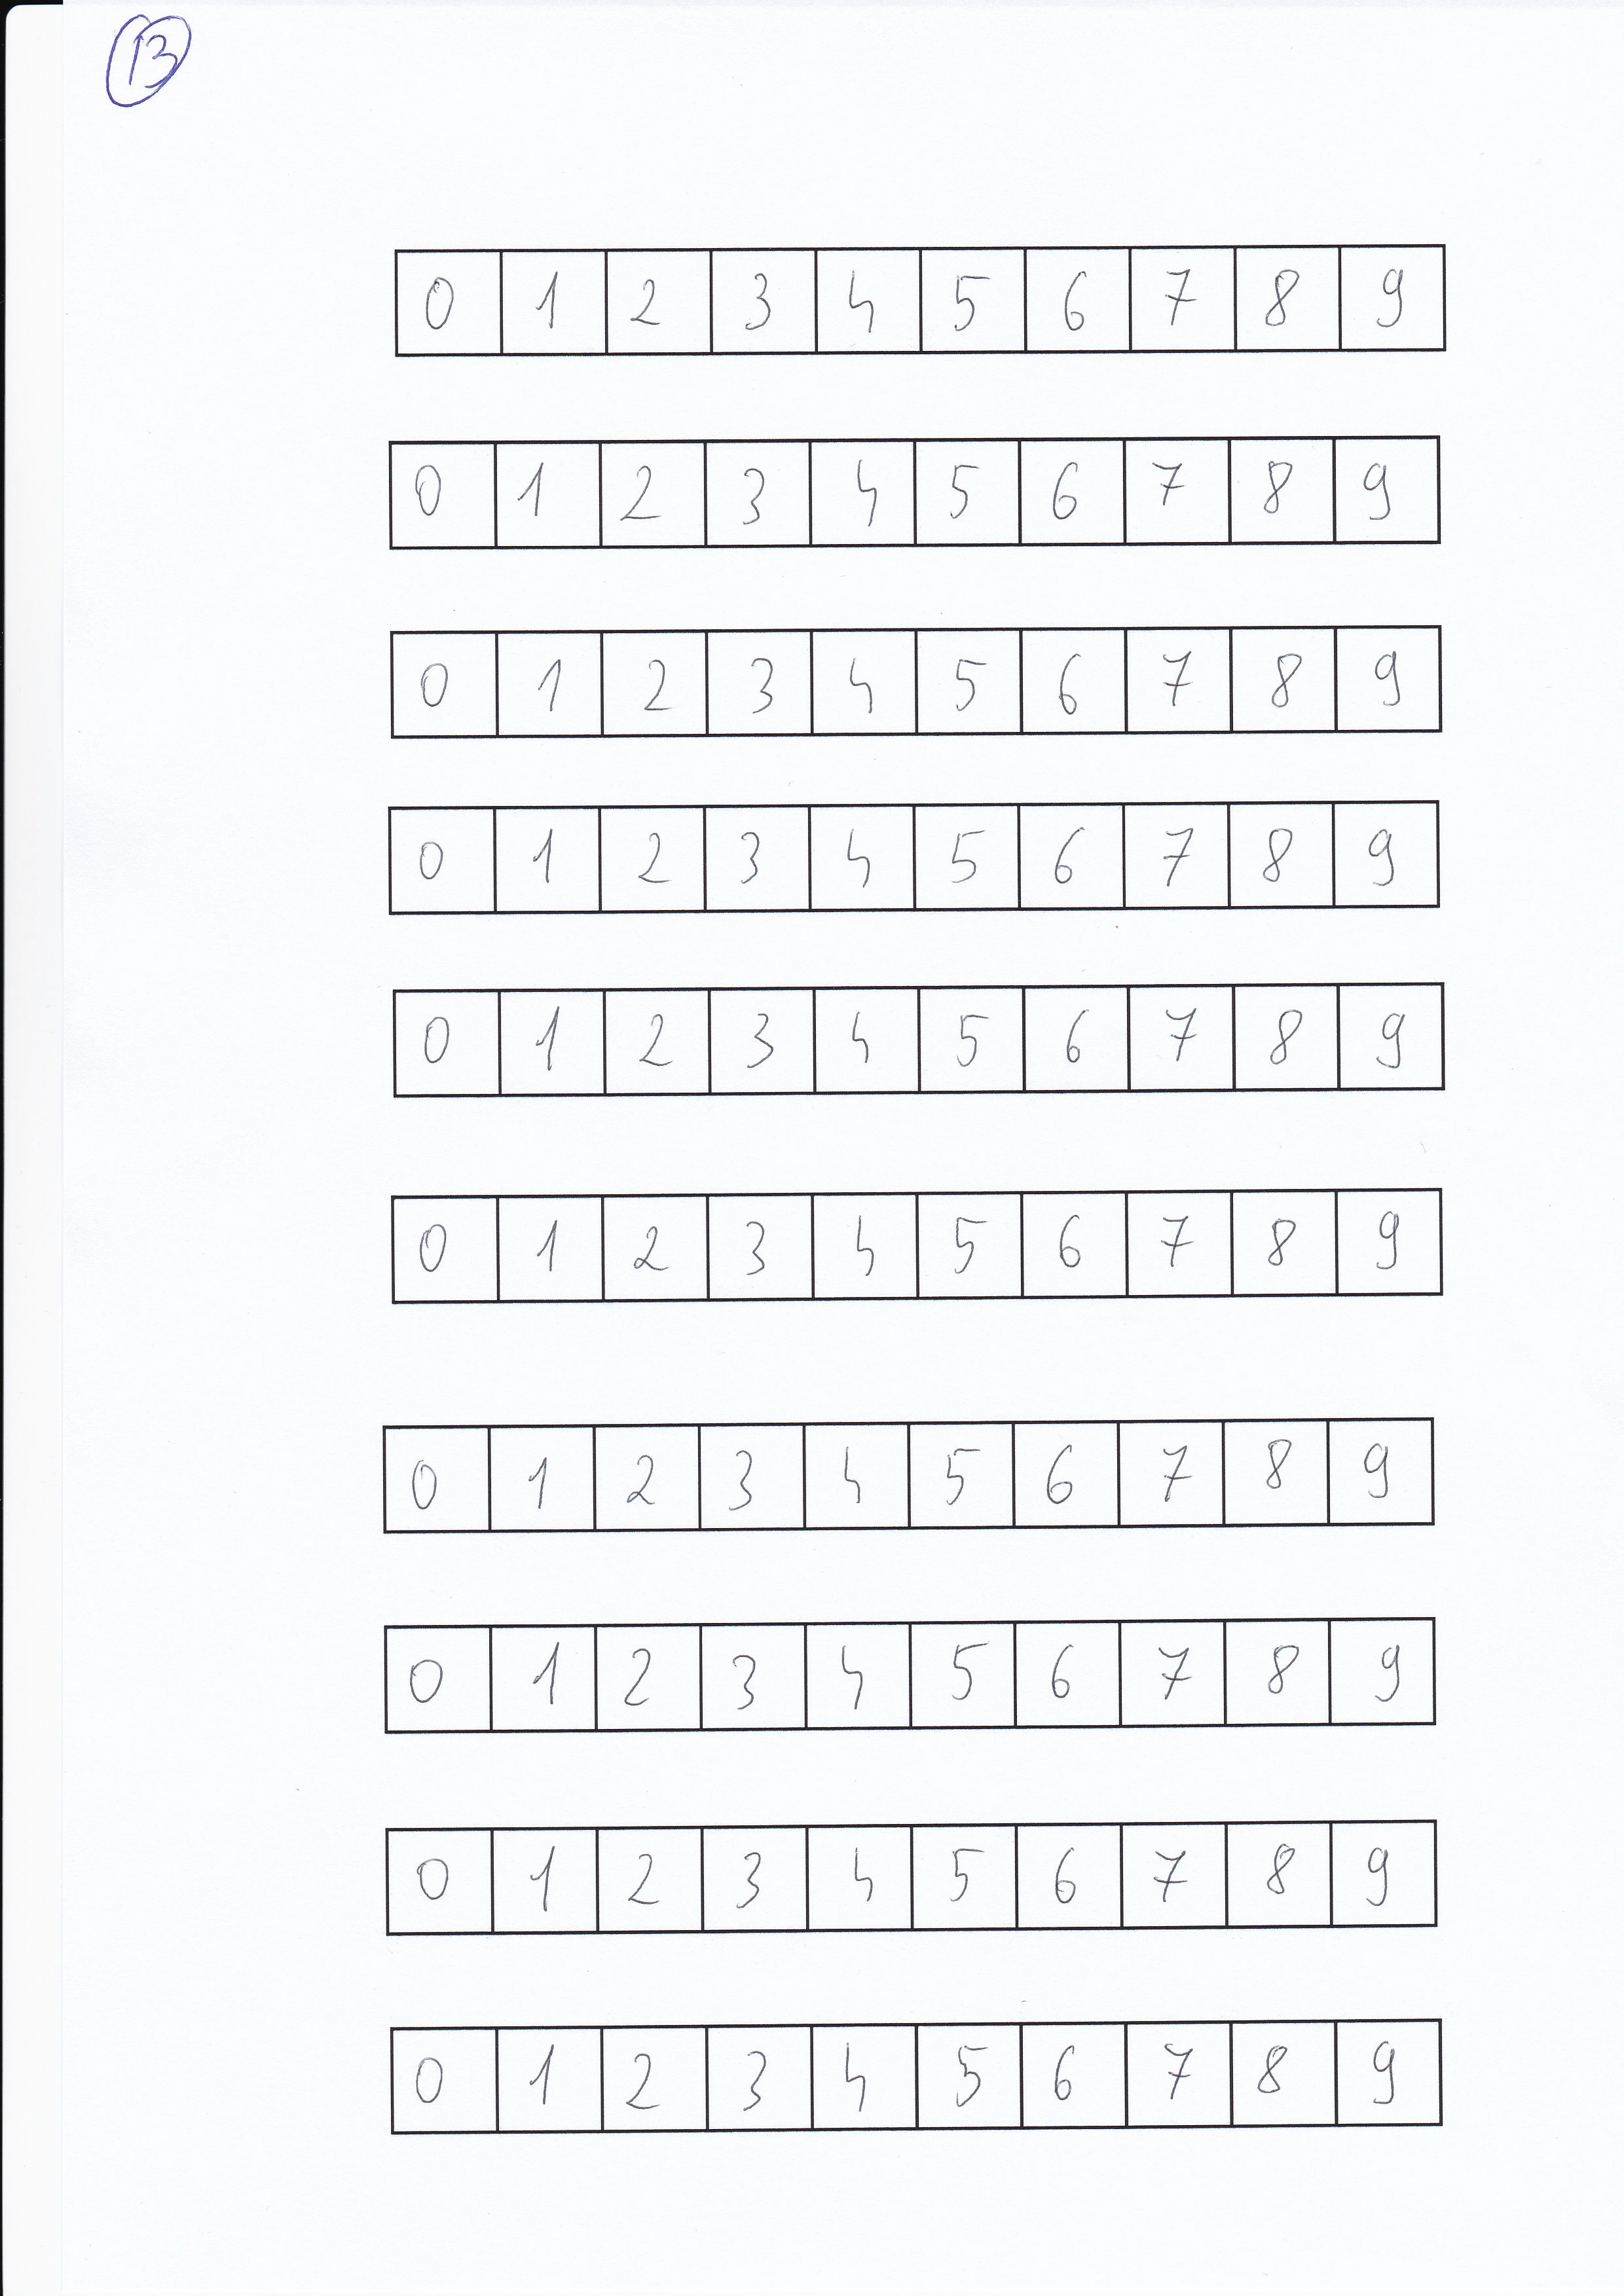 13
0 1 2 3 4 5 6 7 8 9
0 1 2 3 4 5 6 7 8 9
0 1 2 3 4 5 6 7 8 9
0 1 2 3 4 5 6 7 8 9
0 1 2 3 4 5 6 7 8 9
0 1 2 3 4 5 6 7 8 9
0 1 2 3 4 5 6 7 8 9
0 1 2 3 4 5 6 7 8 9
0 1 2 3 4 5 6 7 8 9
0 1 2 3 4 5 6 7 8 9